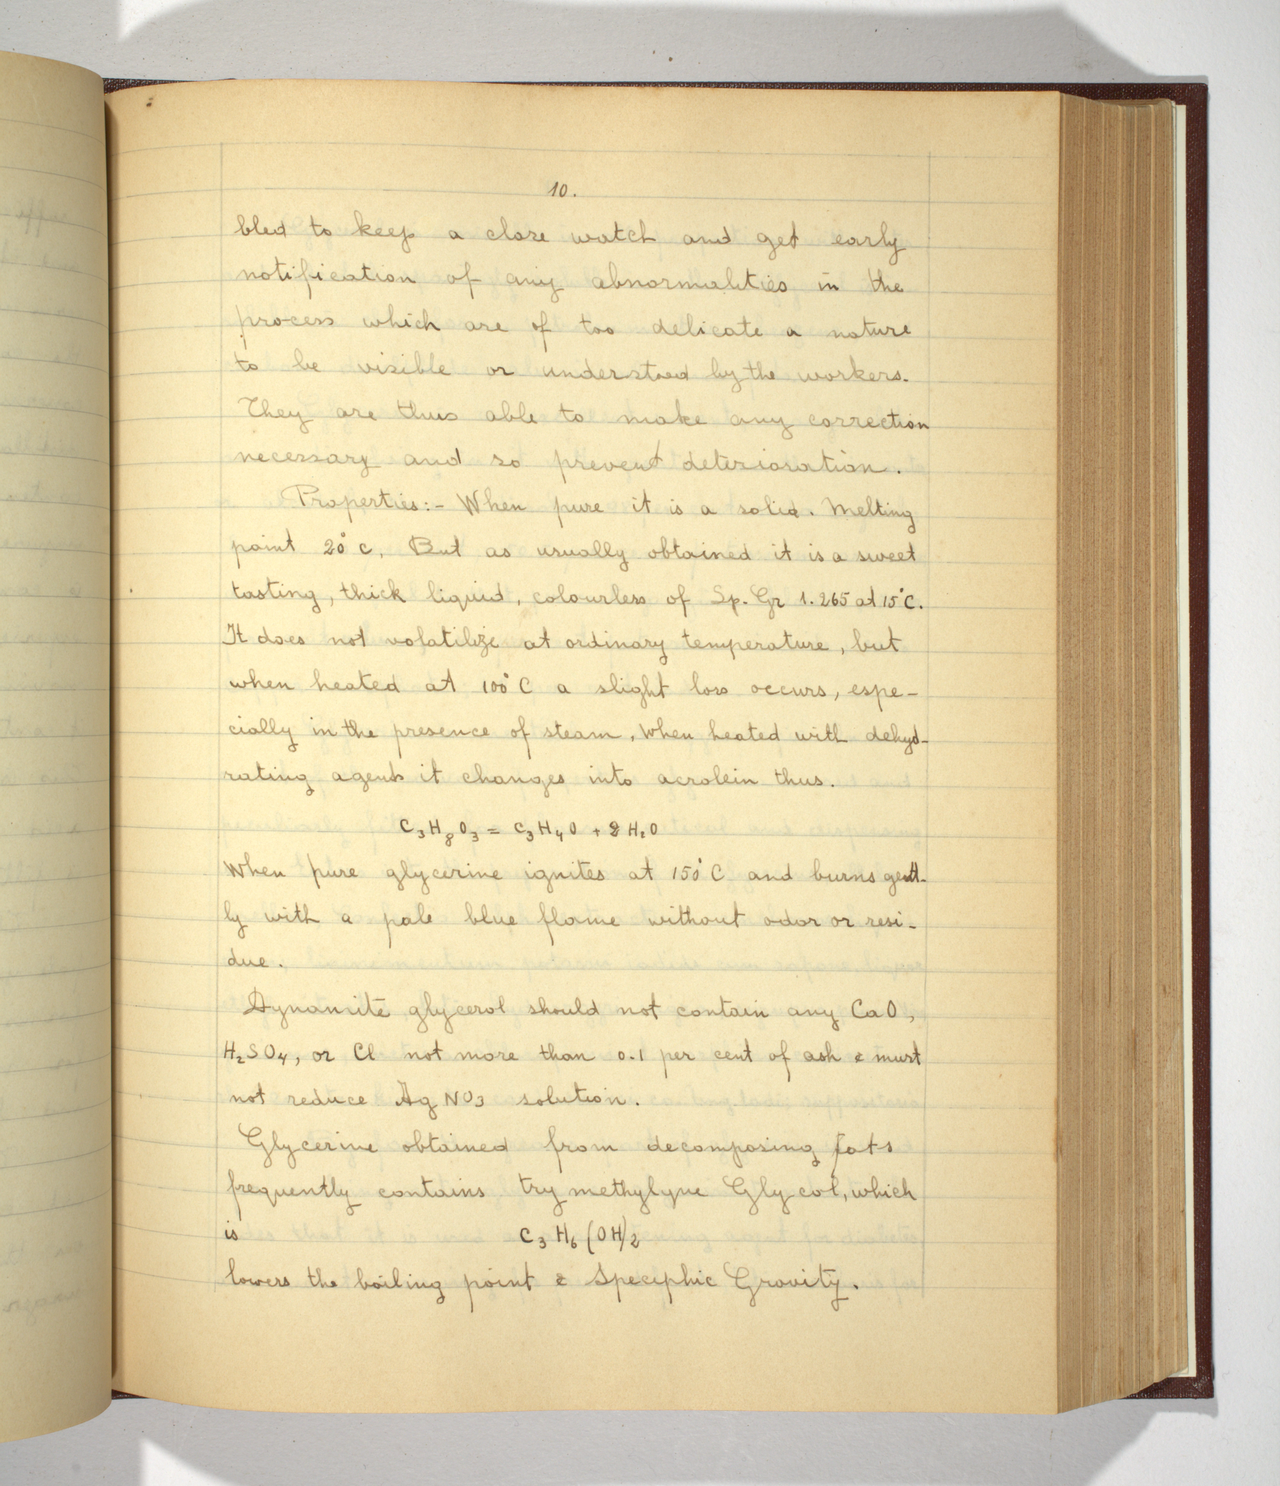 10.
bled to keep a close watch and get early
notification of any abnormalities in the
process which are of too delicate a nature
to be visible or understood by the workers.
They are thus able to make any correction
necessary and so prevent deterioration.
Properties:- When pure it is a solid. Melting
point 20° C. But as usually obtained it is a sweet
tasting, thick liquid, colourless of Sp. Gr 1.265 at 15° C.
It does not volatilize at ordinary temperature, but
when heated at 100° C a slight loss occurs, espe-
cially in the presence of steam, When heated with dehyd-
rating agents it changes into acrolein thus.
C₃H₈O₃ = C₃H₄O + 2 H₂O
When pure glycerine ignites at 150° C and burns gent-
ly with a pale blue flame without odor or resi-
due.
Dynamite glycerol should not contain any CaO,
H₂SO₄, or Cl not more than 0.1 per cent of ash & must
not reduce AgNO₃ solution.
Glycerine obtained from decomposing fats
frequently contains trymethylyne Glycol, which
is C₃H₆(OH)₂
lowers the boiling point & Speciphic Gravity.